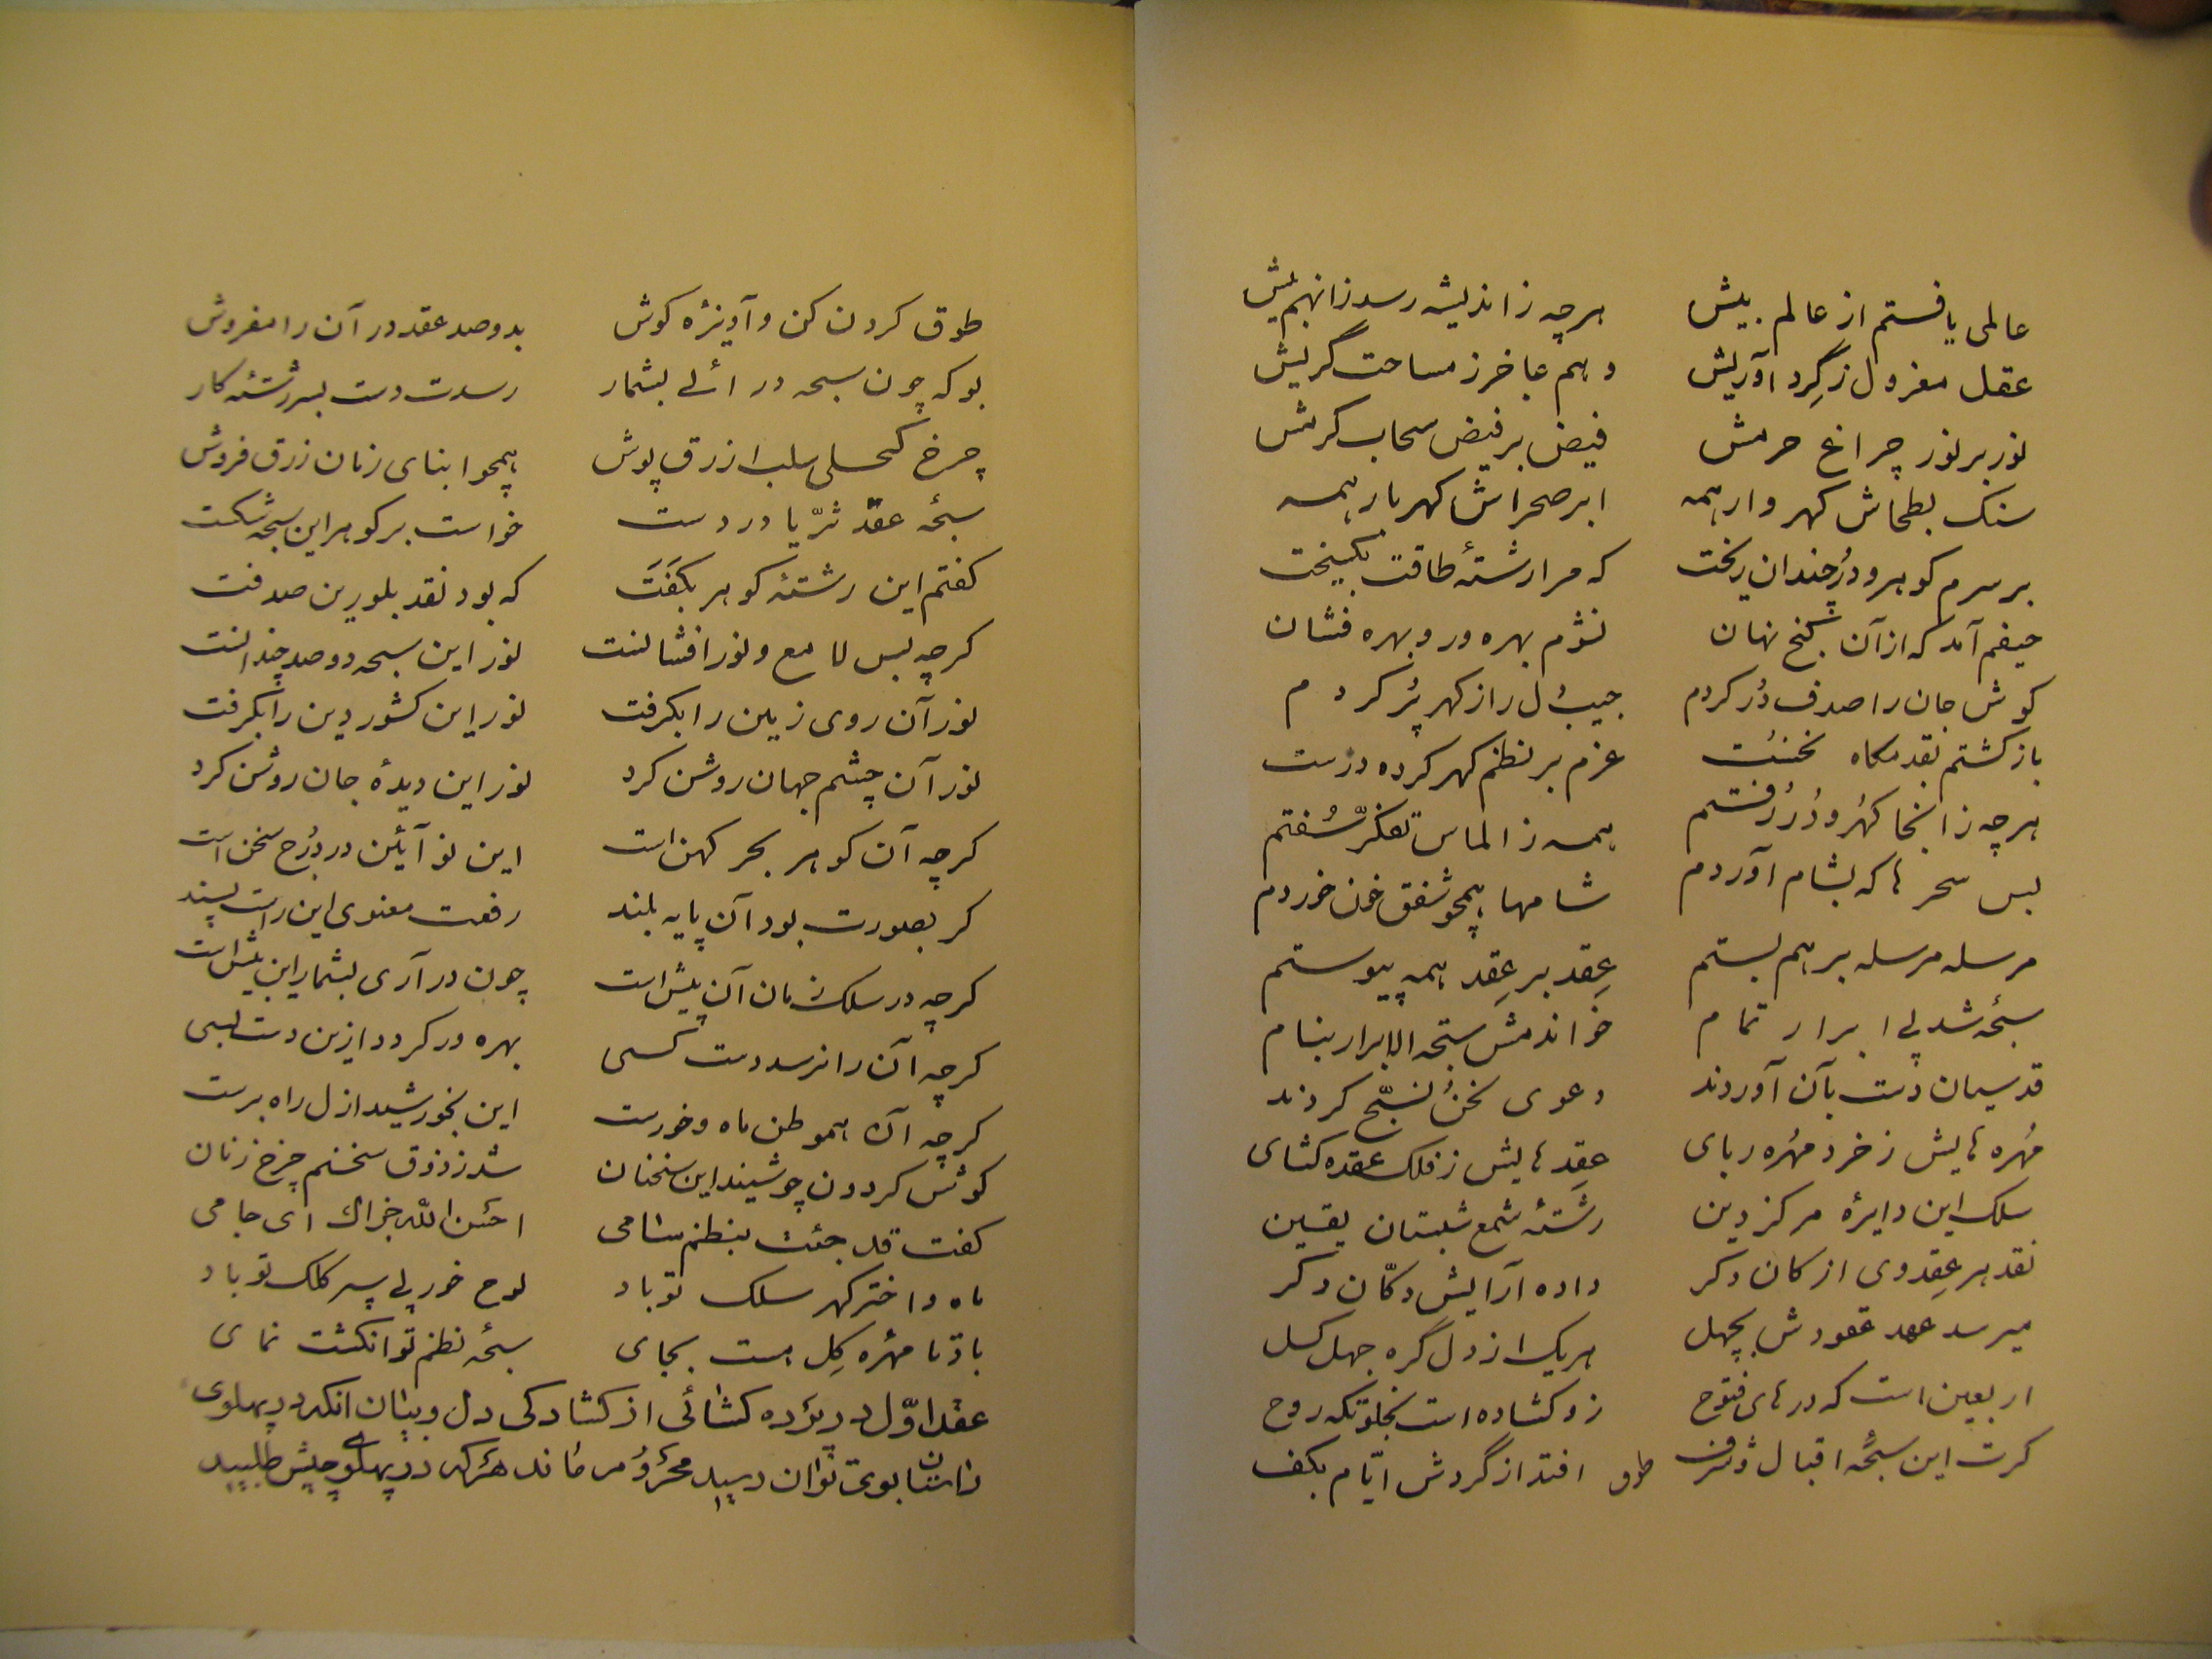 عالمی یافتم از عالم بیش هرچه ز اندیشه رسد زانهم بیش
عقل معزول ز گرد آوریش وهم عاجز ز مساحت گریش
نور بر نور چراغ حرمش فیض بر فیض سحاب کرمش
سنک بطحاش کهر وار همه ابر صحراش کهر بار همه
بر سرم کوهر و دُر چندان ریخت که مرا رشتهٔ طاقت بکسیخت
حیفم آمد که از آن کنج نهان نشوم بهره ور و بهره فشان
کوش جان را صدف دُر کردم جیب دل را ز کهر پُر کردم
باز کشتم بقدمکاه نخست عزم بر نظم کهر کرده درست
هرچه ز انجا کهُر و دُر رُفتم همه ز الماس تفکّر سُفتم
بس سحرها که بشام آوردم شامها همچو شفق خون خوردم
مرسله مرسله بر هم بستم عِقد بر عِقد همه پیوستم
سبحهٔ شد پی ابرار تمام خواندمش سبحة الابرار بنام
قدسیان دست بآن آوردند دعوی نحنُ نسبّح کردند
مُهره هایش ز خرد مهُره ربای عِقدهایش ز فلک عقده کشای
سلک این دایرهٔ مرکز دین رشتهٔ شمع شبستان یقین
نقد هر عِقد وی از کان دکر داده آرایش دکّان دکر
میرسد عهد عقودش بچهل هریک از دل گره جهل کسل
اربعین است که درهای فتوح زو کشاده است بخلوتکه روح
کرت این سبحهٔ اقبال و شرف افتد از گردش ایّام بکف
طوق
طوق کردن کن و آویزهٔ کوش بدو صد عقد در آن را مفروش
بوکه چون سبحه در ائی بشمار رسدت دست بسر رشتهٔ کار
چرخ کحلی سلب ازرق پوش همچو ابنای زمان زرق فروش
سبحهٔ عقد ثریّا در دست خواست بر کوهر این سبحه شکست
کفتم این رشتهٔ کوهر بکفَتَ که بود نقد بلورین صدفت
کرچه بس لامع و نور افشانست نور این سبحه دو صد چندانست
نور آن روی زمین را بکرفت نور این کشور دین را بکرفت
نور آن چشم جهان روشن کرد نور این دیدهٔ جان روشن کرد
کرچه آن کوهر بحر کهن است این نو آئین در دُرج سخن است
کر بصورت بود آن پایه بلند رفعت معنوی این راست پسند
کرچه در سلک زمان آن پیش است چون در آری بشمار این بیش است
کرچه آن را نرسد دست کسی بهره ور کردد ازین دست بسی
کرچه آن هموطن ماه و خورست این بخورشید ازل راه برست
کوش کردون چو شنید این سخنان شد ز ذوق سخنم چرخ زنان
کفت قد جئت بنظم سامی احسن الله جزاک ای جامی
ماه و اختر کهر سلک تو باد لوح خور پی سپر کلک تو باد
باد تا مهرهٔ کِل هست بجای سبحهٔ نظم تو انکشت نمای
عقد اوّل در پرده کشائی از کشادکی دل و بیان انکه در پهلوی
راستان بوی توان رسید محروُم ماند هرکه در پهلوی چپش طلبید